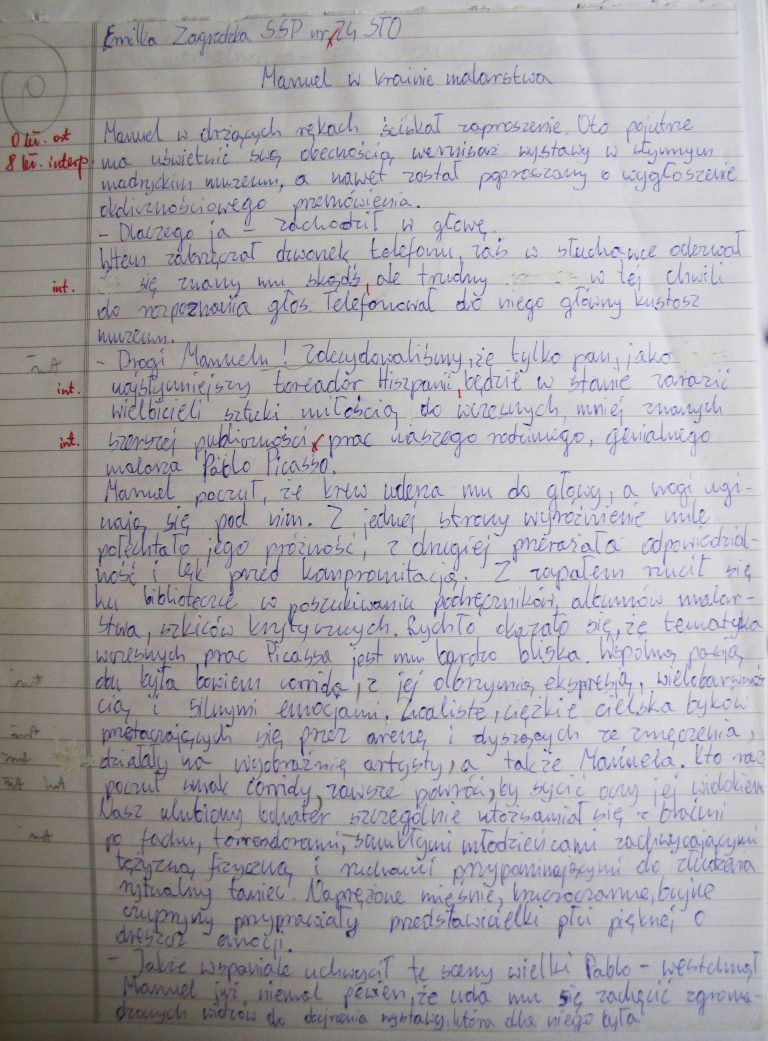 Emilka Zagrodzka SSP nr 24 STO
Manuel w krainie malarstwa
0 bł. ort
8 bł. interp.
Manuel w drżących rękach ściskał zaproszenie. Oto pojutrze
ma uświetnić swą obecnością wernisaż wystawy w słynnym
madryckim muzeum, a nawet został poproszony o wygłoszenie
okolicznościowego przemówienia.
- Dlaczego ja - zachodził w głowę.
Wtem zabrzęczał dzwonek telefonu, zaś w słuchawce odezwał
int. się znany mu skądś, ale trudny w tej chwili
do rozpoznania głos. Telefonował do niego główny kustosz
muzeum.
int - Drogi Manuelu! Zdecydowaliśmy, że tylko pan, jako
int. najsłynniejszy toreador Hiszpanii, będzie w stanie zarazić
wielbicieli sztuki miłością do wczesnych, mniej znanych
int. szerszej publiczności prac naszego rodzimego, genialnego
malarza Pablo Picasso.
Manuel poczuł, że krew uderza mu do głowy, a nogi ugi-
nają się pod nim. Z jednej strony wyróżnienie mile
połechtało jego próżność, z drugiej przerażała odpowiedzial-
ność i lęk przed kompromitacją. Z zapałem rzucił się
ku biblioteczce w poszukiwaniu podręczników, albumów malar-
stwa, szkiców krytycznych. Rychło okazało się, że tematyka
wczesnych prac Picassa jest mu bardzo bliska. Wspólną pasją
int obu była bowiem corrida, z jej olbrzymią ekspresją, wielobarwnoś
cią i silnymi emocjami. Zwaliste, ciężkie cielska byków
int przetaczających się przez arenę i dyszących ze zmęczenia,
int działały na wyobraźnię artysty, a także Manuela. Kto raz
int int poczuł smak corridy, zawsze powróci, by sycić oczy jej widokiem.
Nasz ulubiony bohater szczególnie utożsamiał się z braćmi
int po fachu, torreadorami, smukłymi młodzieńcami zachwycającymi
tężyzną fizyczną i ruchami przypominającymi do złudzenia
rytualny taniec. Naprężone mięśnie, kruczoczarne, bujne
czupryny przyprawiały przedstawicielki płci pięknej o
dreszcz emocji.
- Jakże wspaniale uchwycił te sceny wielki Pablo - westchnął
Manuel już niemal pewien, że uda mu się zachęcić zgroma-
dzonych widzów do obejrzenia wystawy, która dla niego była